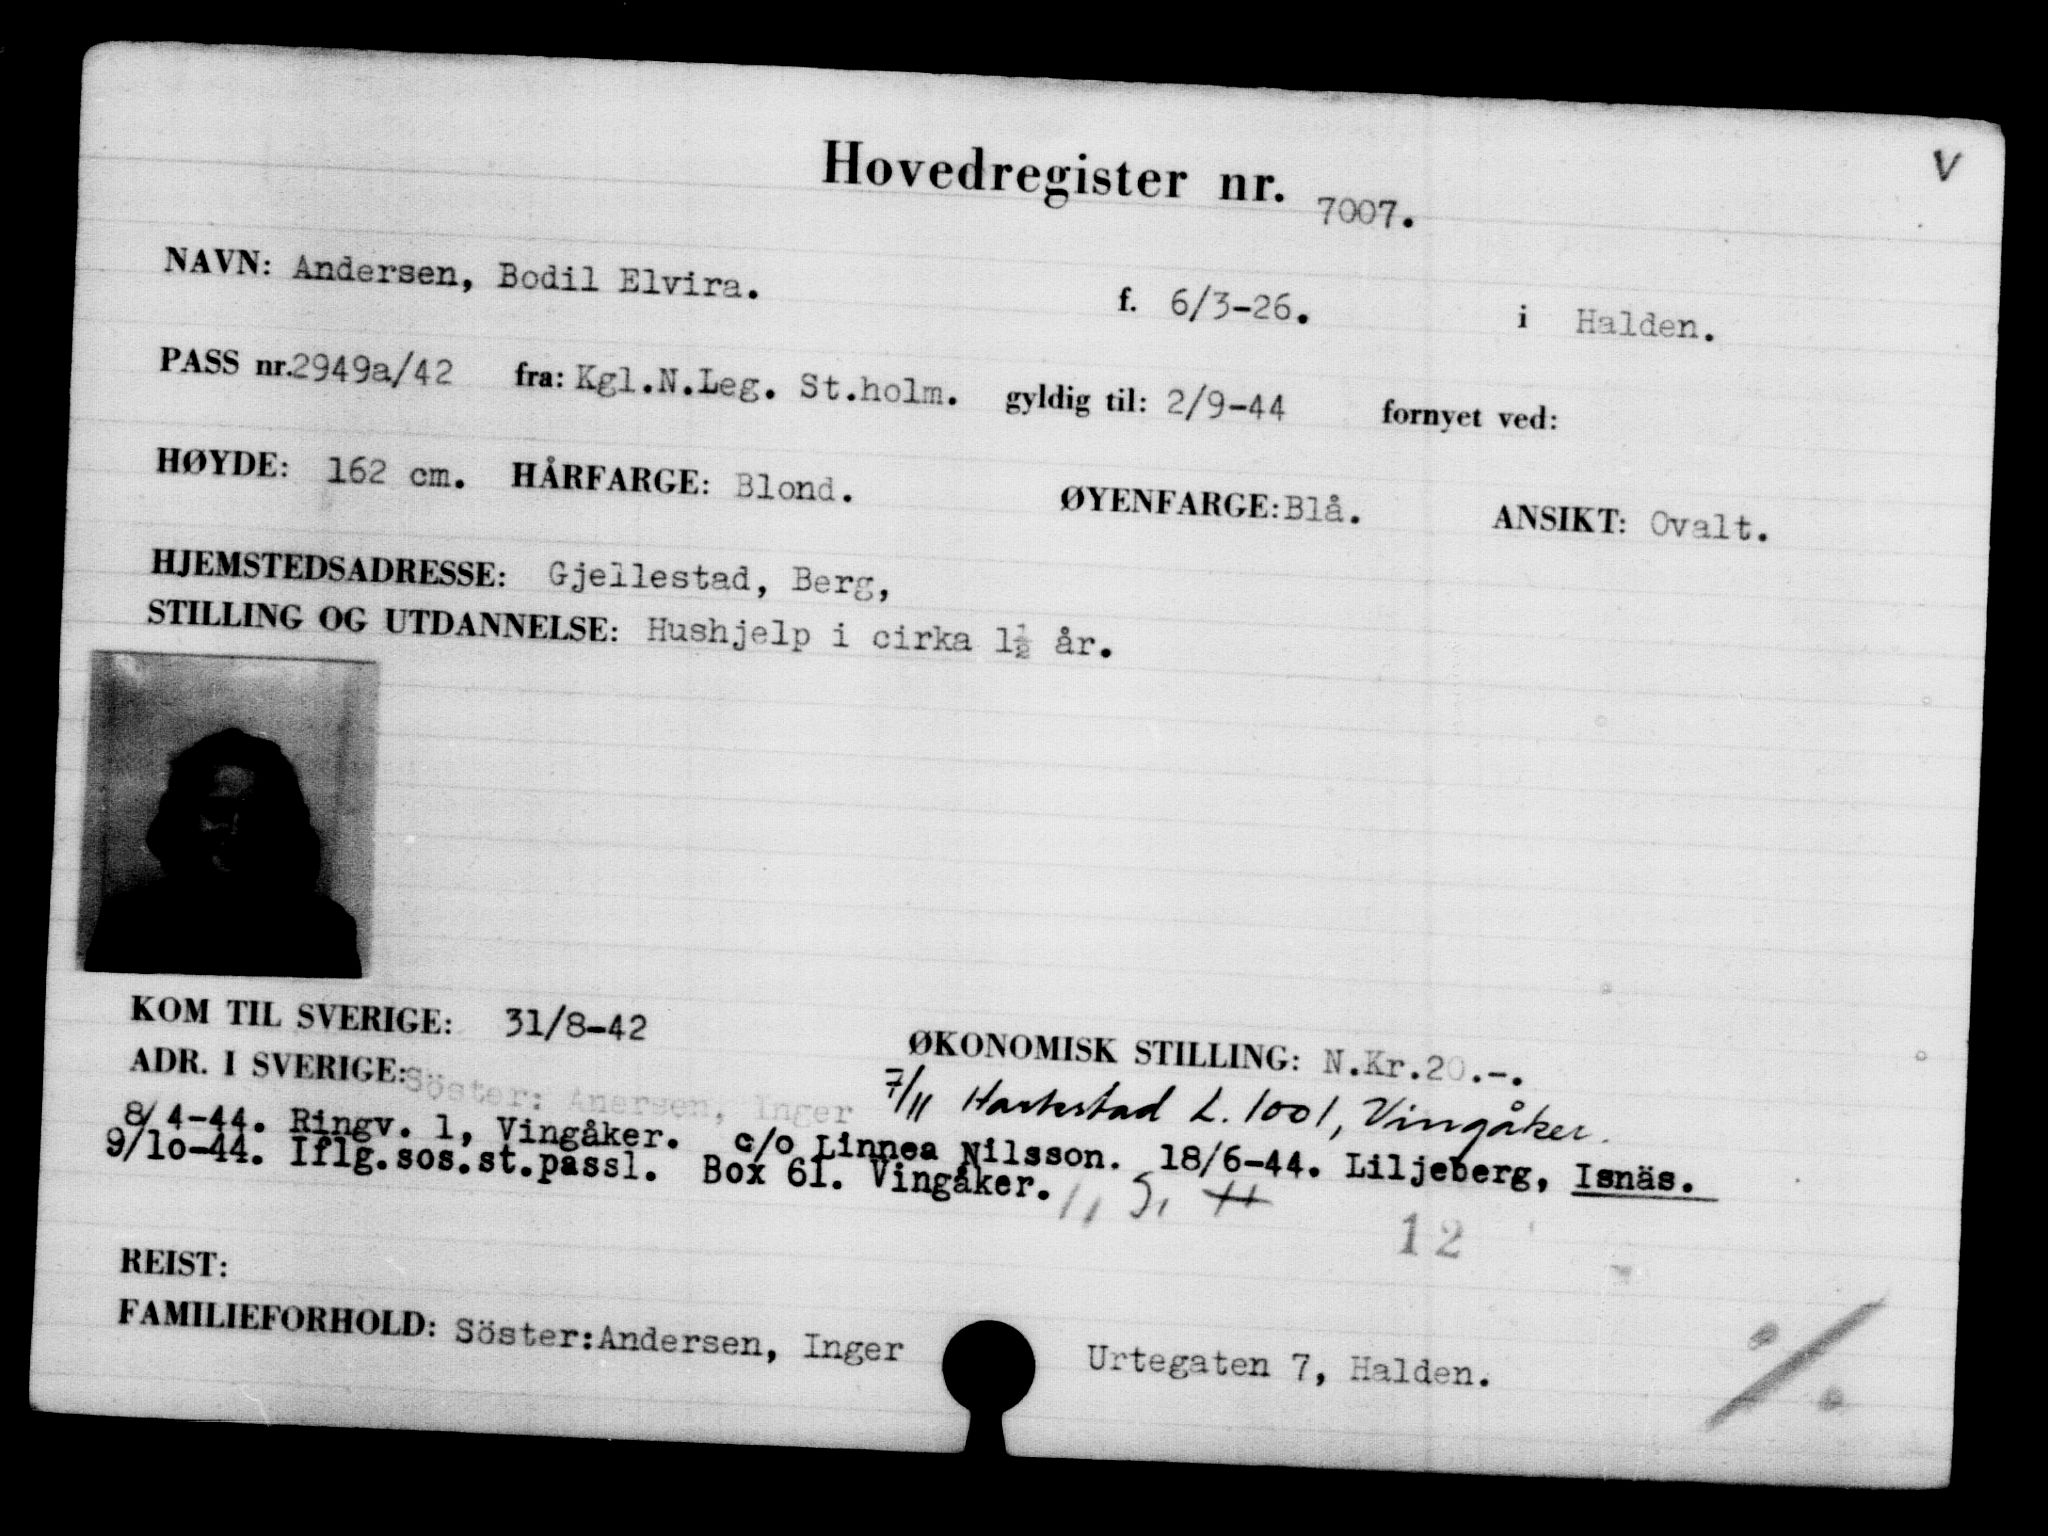 V
Hovedregister nr. 7007.
NAVN: Andersen, Bodil Elvira. f. 6/3-26. i Halden.
PASS nr.2949a/42 fra: Kgl.N.Leg. St.holm. gyldig til: 2/9-44 fornyet ved:
HØYDE: 162 cm. HÅRFARGE: Blond. ØYENFARGE:Blå. ANSIKT: Ovalt.
HJEMSTEDSADRESSE: Gjellestad, Berg,
STILLING OG UTDANNELSE: Hushjelp i cirka 1½ år.
KOM TIL SVERIGE: 31/8-42 ØKONOMISK STILLING: N.Kr.20.-.
ADR. I SVERIGE: Söster: Anersen, Inger 7/11 L. 1001, Vingåker.
8/4-44. Ringv. 1, Vingåker. c/o Linnea Nilsson. 18/6-44. Liljeberg, Isnäs.
9/10-44. Iflg.sos.st.passl. Box 61. Vingåker.
12
REIST:
FAMILIEFORHOLD: Söster:Andersen, Inger Urtegaten 7, Halden.